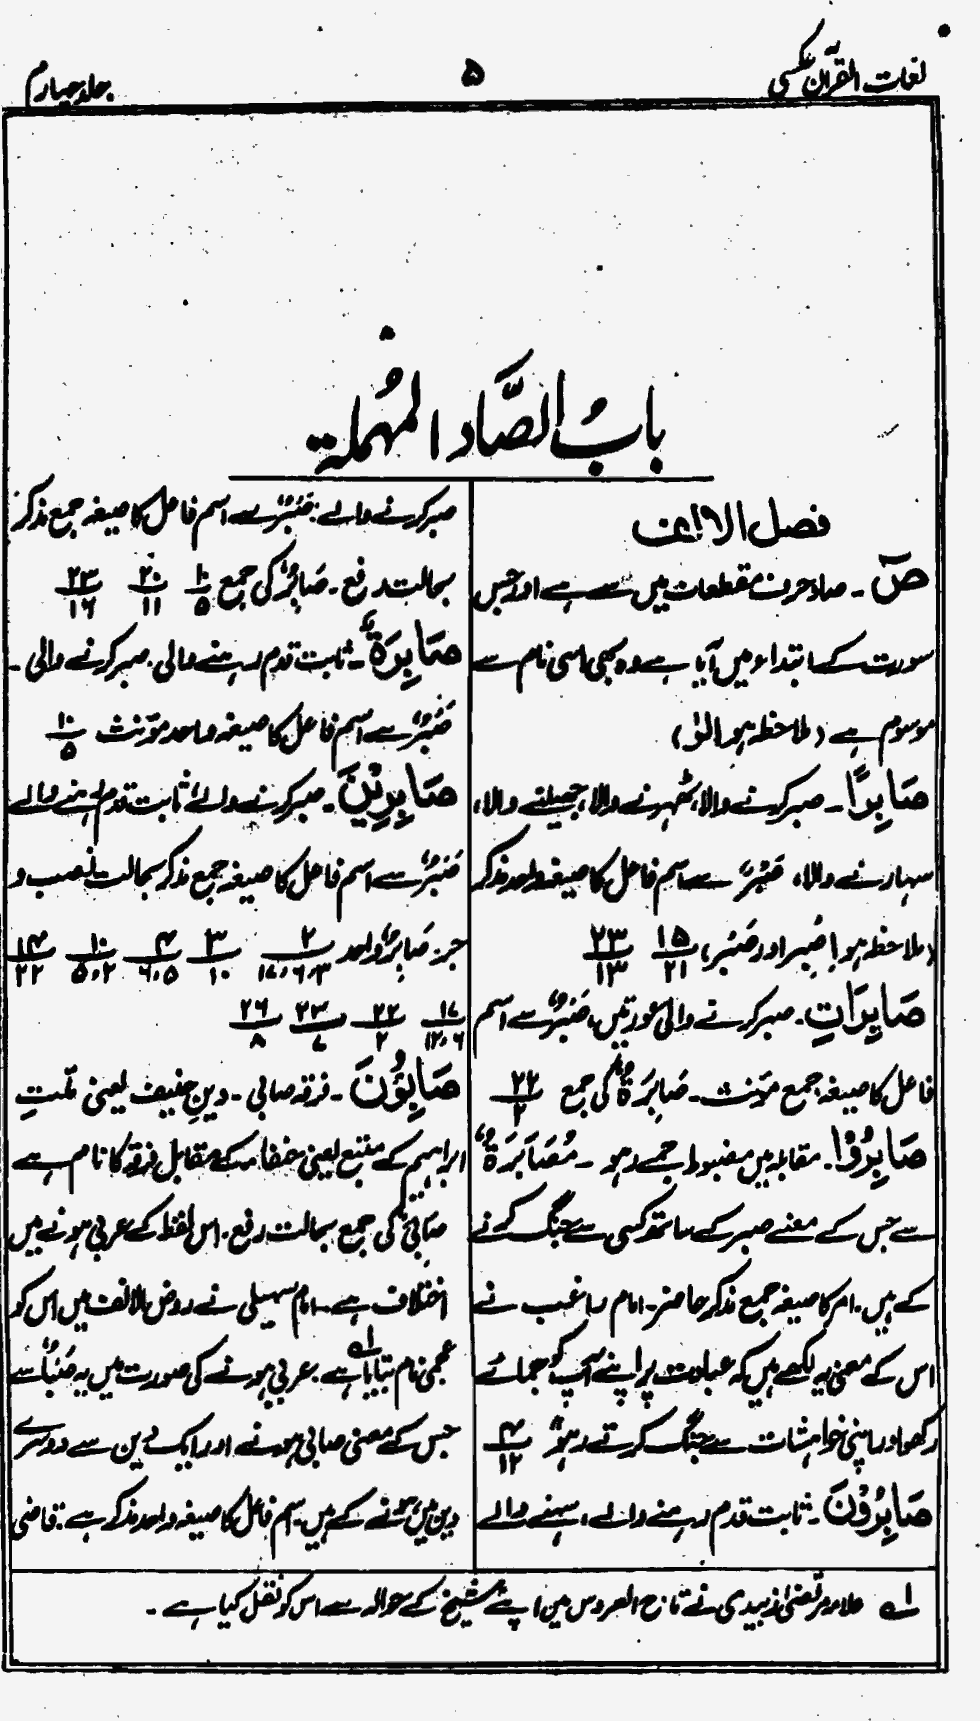 لغات القرآن عکسی
۵
جلد چہارم
بابُ الصَّاد المُہملة
فصل الالف
صٓ ۔ صاد حروف مقطعات میں سے ہے اور جس
سورت کے ابتداء میں آیا ہے وہ بھی اسی نام سے
موسوم ہے (ملاحظہ ہو الٓمٓ)
صَابِرًا ۔ صبر کرنے والا، ٹھہرنے والا، جھیلنے والا،
سہارنے والا، صَبْرٌ سے اسم فاعل کا صیغہ واحد مذکر
(ملاحظہ ہو اِصْبِر اور صَبْر) ۱۵/۲۱ ۲۳/۱۳
صَابِرَاتٍ ۔ صبر کرنے والی عورتیں، صَبْرٌ سے اسم
فاعل کا صیغہ جمع مؤنث ۔ صَابِرَةٌ کی جمع ۲۲/۲
صَابِرُوْا ۔ مقابلہ میں مضبوط جمے رہو ۔ مُصَابَرَةٌ
سے جس کے معنے صبر کے ساتھ کسی سے جنگ کرنے
کے ہیں ۔ امر کا صیغہ جمع مذکر حاضر ۔ امام راغب نے
اس کے معنی یہ لکھے ہیں کہ عبادت پر اپنے آپ کو جمائے
رکھو اور اپنی خواہشات سے جنگ کرتے رہو ۴/۱۲
صَابِرُوْنَ ۔ ثابت قدم رہنے والے، سہنے والے
صبر کرنے والے ۔ صَبْرٌ سے اسم فاعل کا صیغہ جمع مذکر
بحالت رفع ۔ صَابِرٌ کی جمع ۱۰/۵ ۲۰/۱۱ ۲۳/۱۶
صَابِرَةٌ ۔ ثابت قدم رہنے والی ۔ صبر کرنے والی ۔
صَبْرٌ سے اسم فاعل کا صیغہ واحد مؤنث ۱۰/۵
صَابِرِيْنَ ۔ صبر کرنے والے، ثابت قدم رہنے والے
صَبْرٌ سے اسم فاعل کا صیغہ جمع مذکر بحالت نصب و
جر ۔ صَابِرٌ واحد ۲/۱۷،۶،۳ ۳/۱۰ ۴/۶،۵ ۱۰/۵،۲ ۱۴/۲۲
۱۷/۱۲،۶ ۲۲/۲ ۲۳/۷ ۲۶/۸
صَابِئُوْنَ ۔ فرقہ صابی ۔ دینِ حنیف یعنی ملّتِ
ابراہیم کے متبع یعنی حنفا کے مقابل فرقہ کا نام ہے
صَابِیٌٔ کی جمع بحالت رفع ۔ اس لفظ کے عربی ہونے میں
اختلاف ہے ۔ امام سہیلی نے روض الانف میں اس کو
عجمی نام بتایا ہے ۱؎ ۔ عربی ہونے کی صورت میں یہ صَبَأَ سے
جس کے معنی صابی ہونے اور ایک دین سے دوسرے
دین میں ہونے کے ہیں ۔ اسم فاعل کا صیغہ واحد مذکر ہے ۔ قاضی
۱؎ علامہ مرتضیٰ زبیدی نے تاج العروس میں اپنے شیخ کے حوالہ سے اس کو نقل کیا ہے ۔